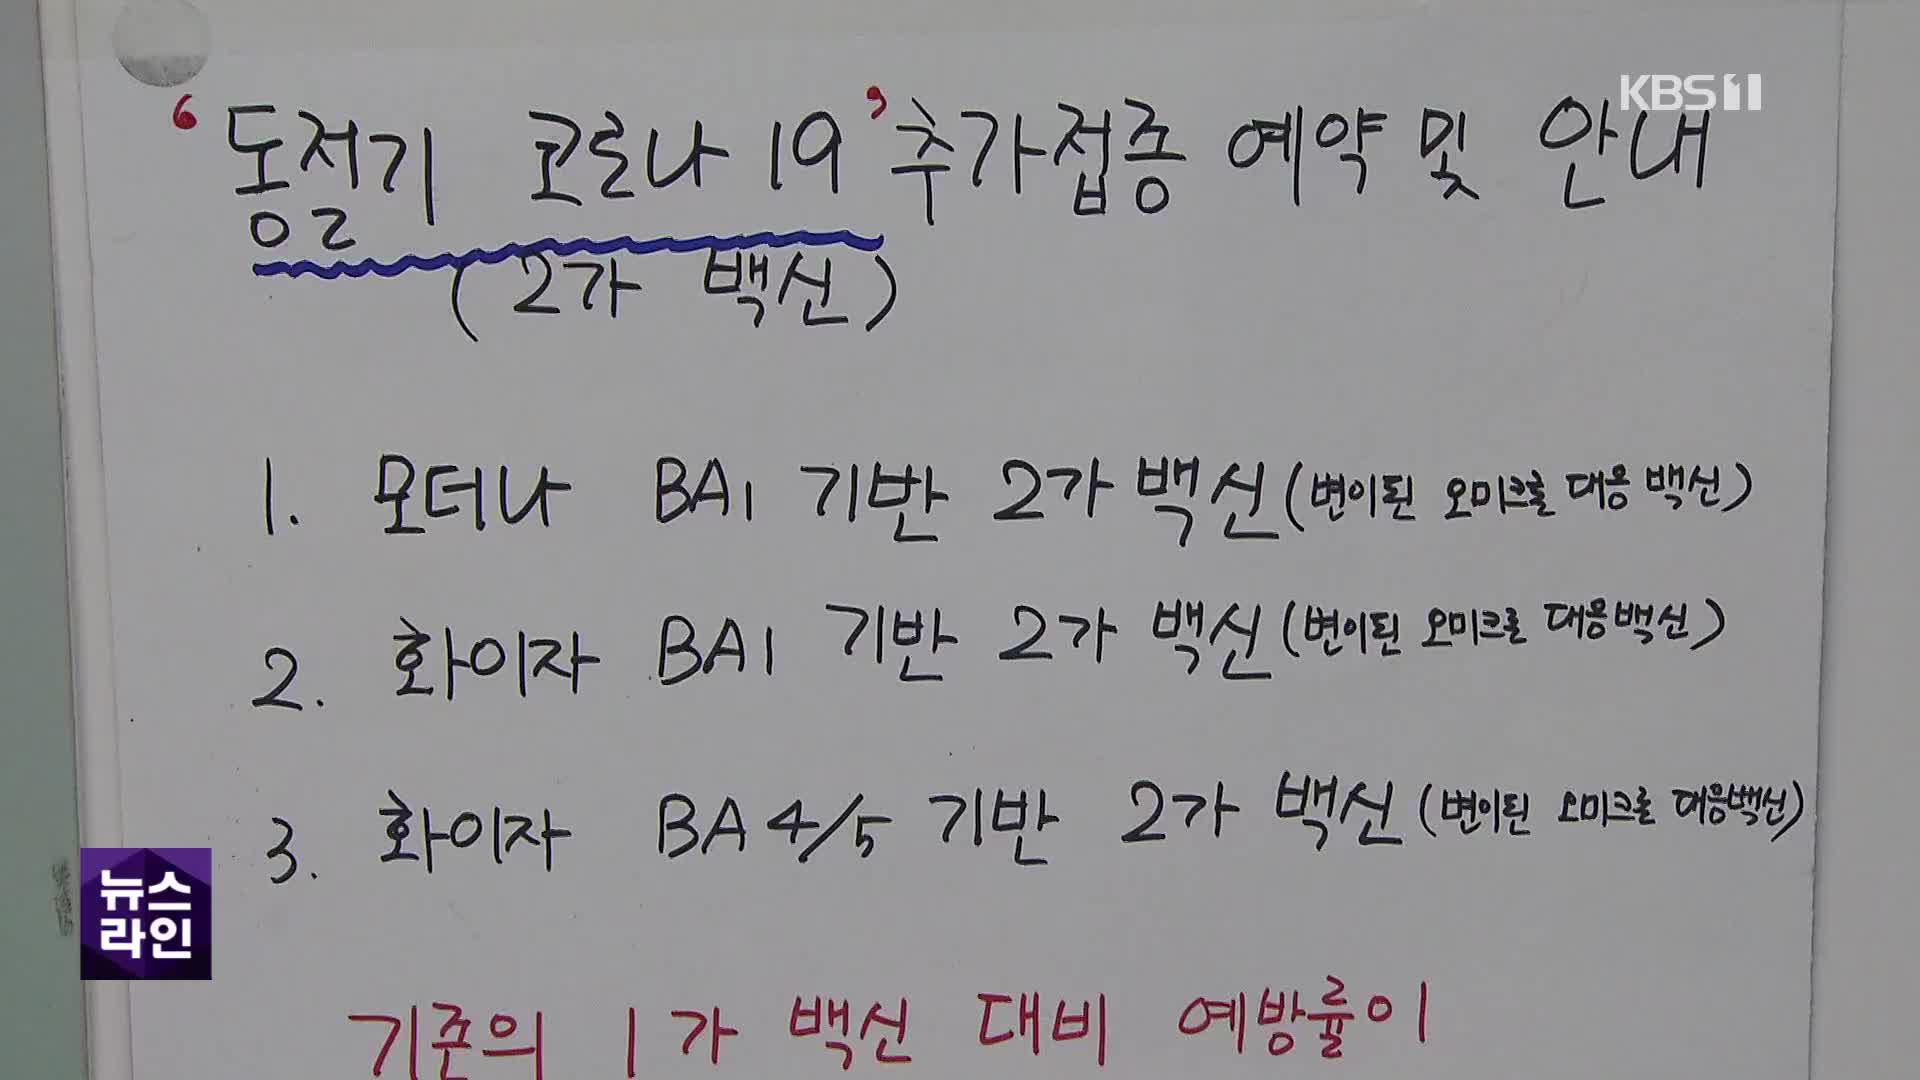 KBS 1
'동절기 코로나 19' 추가접종 예약 및 안내
(2가 백신)
1. 모더나 BA1 기반 2가 백신 (변이된 오미크론 대응 백신)
2. 화이자 BA1 기반 2가 백신 (변이된 오미크론 대응백신)
3. 화이자 BA4/5 기반 2가 백신 (변이된 오미크론 대응백신)
뉴스
라인
기존의 1가 백신 대비 예방률이